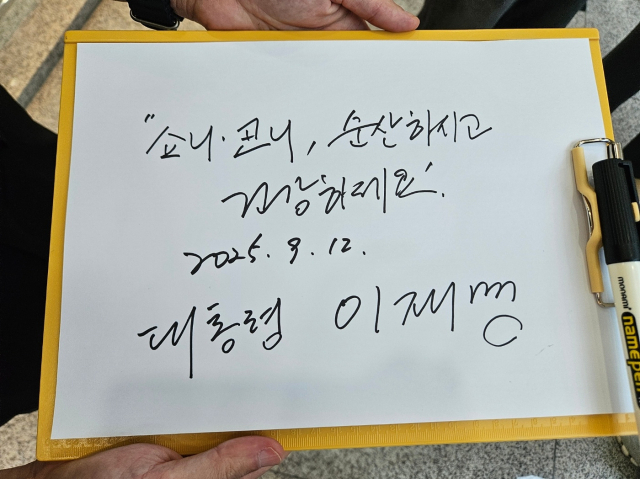 "쇼니·코니, 순산하시고
건강하세요".
2025. 9. 12.
대통령 이재명
monami namepen